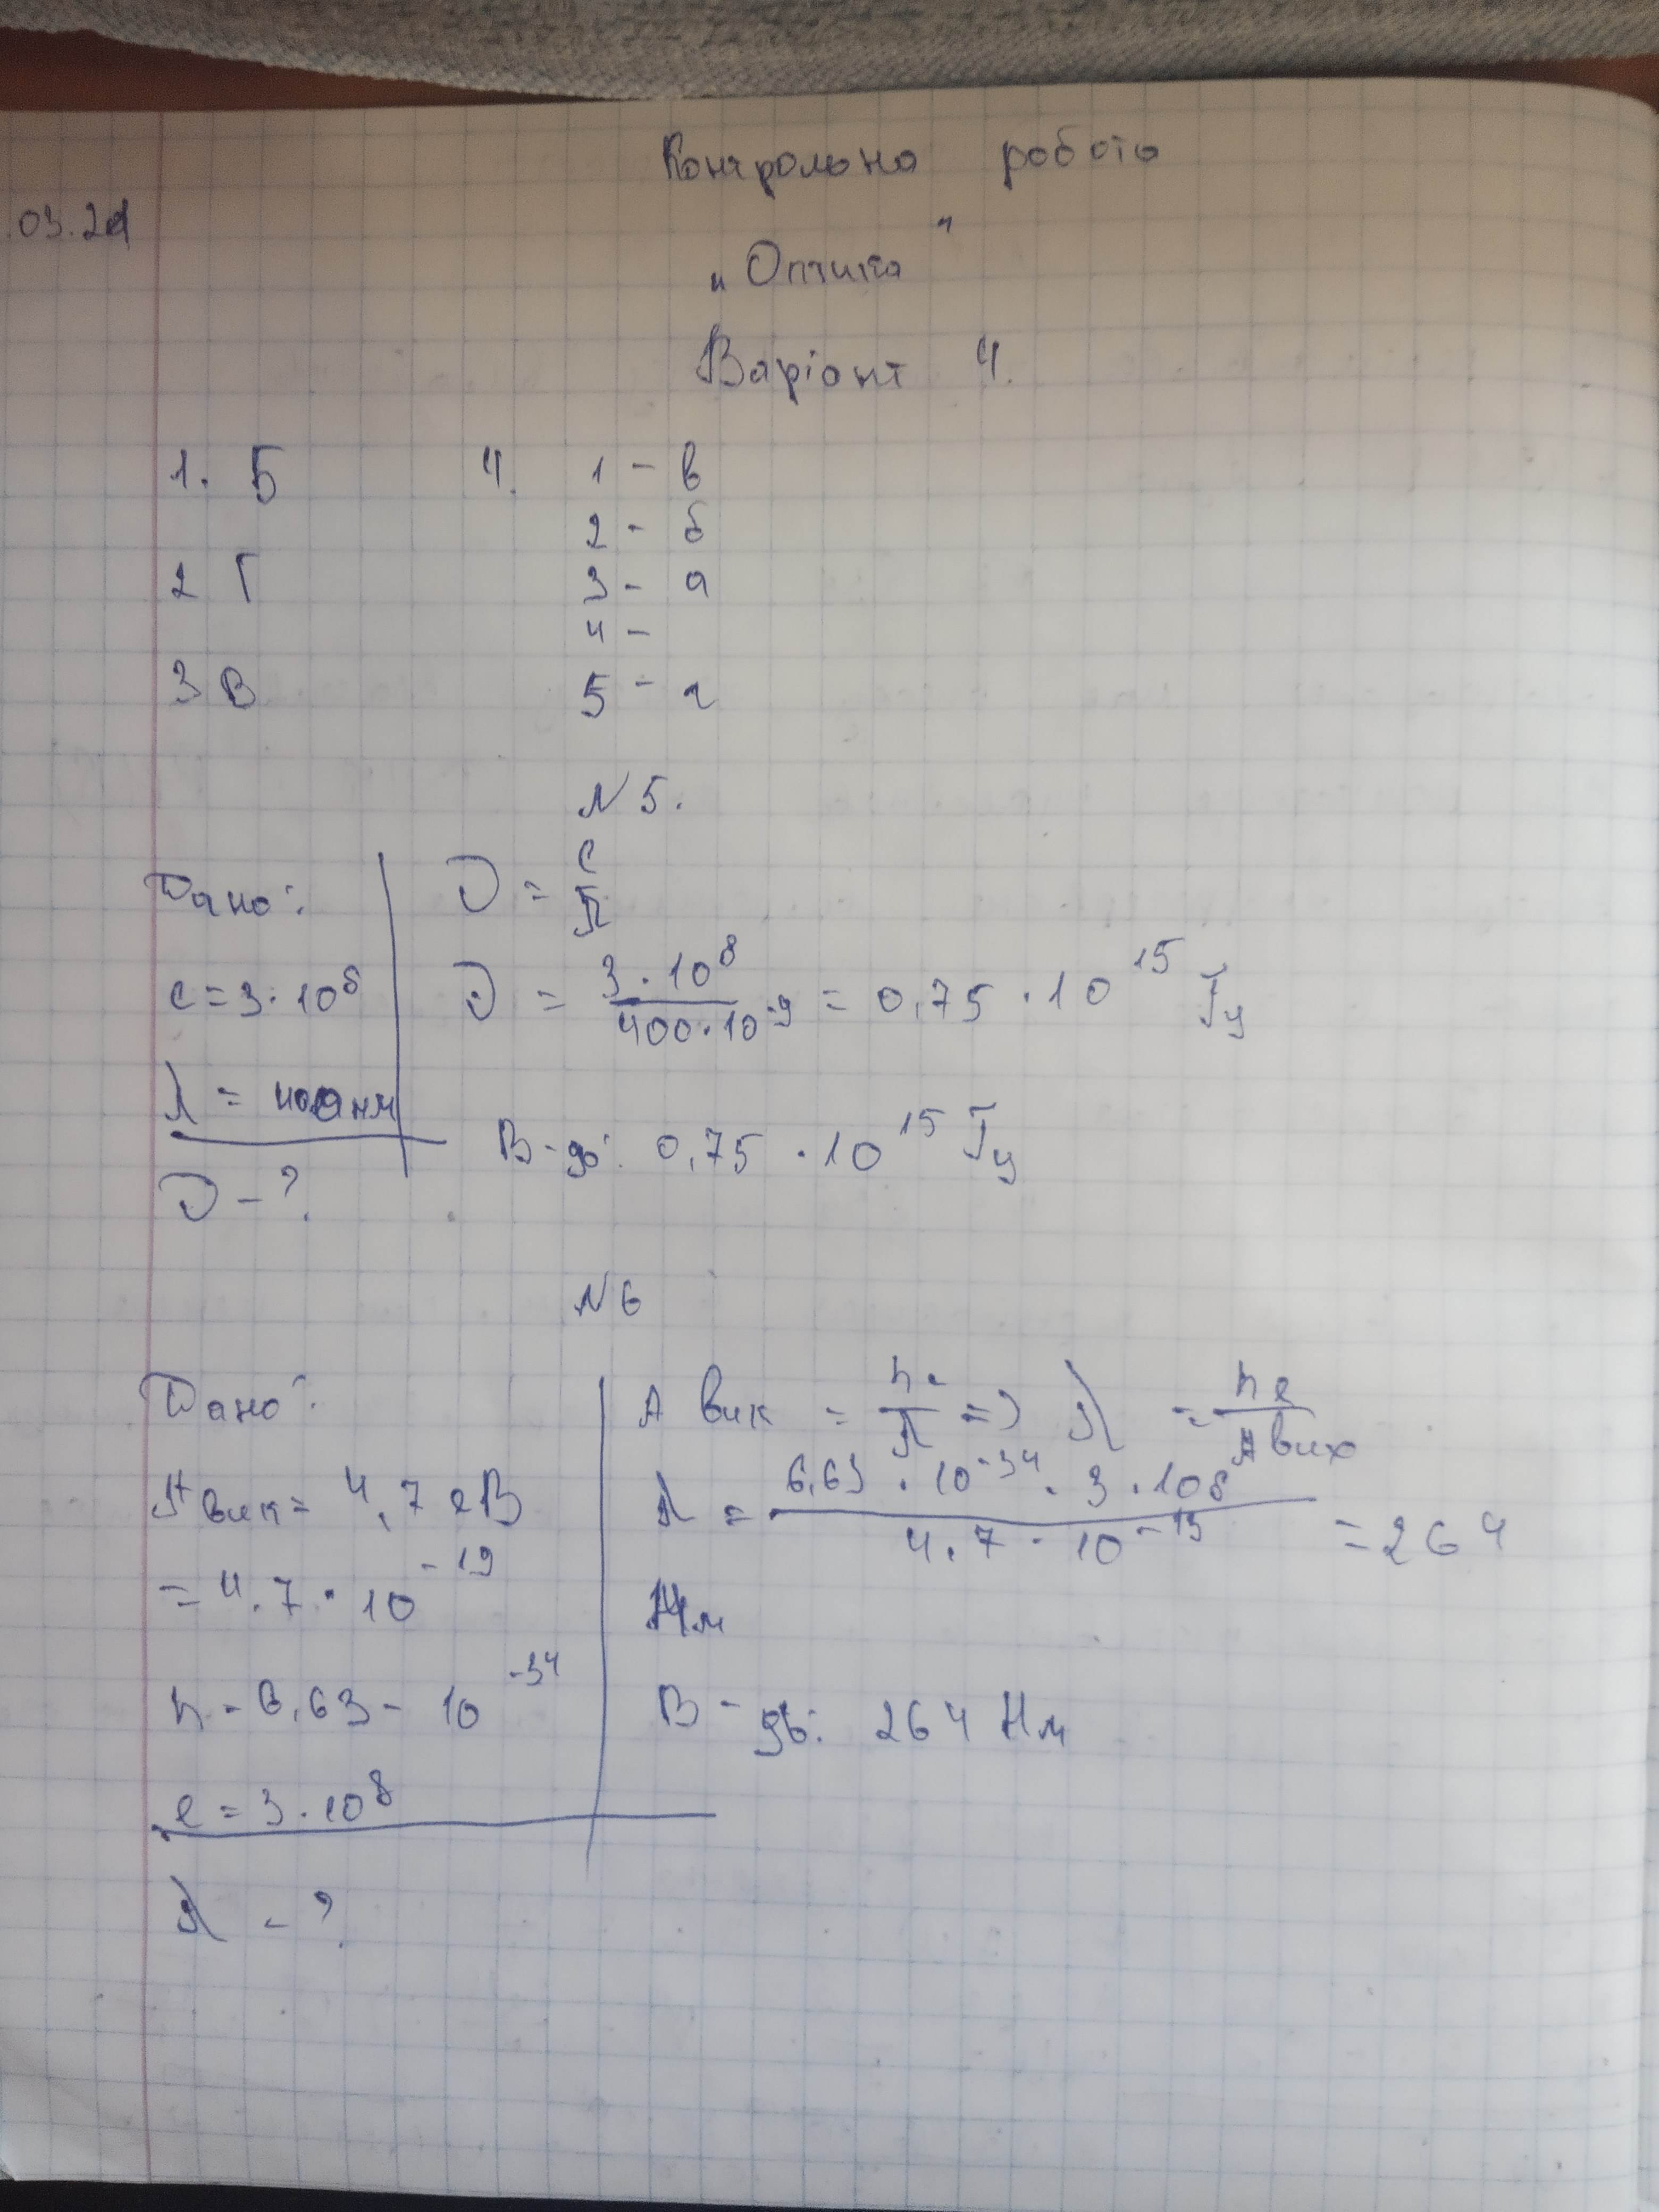 Контрольна робота
.03.21
„Оптика"
Варіант 4.
1. Б
2 Г
3 В
4. 1 - в
2 - б
3 - а
4 -
5 - г
N 5.
Дано:
c = 3 · 10⁸
λ = 400нм
ν - ?
ν = c/λ
ν = 3 · 10⁸ / 400 · 10⁻⁹ = 0,75 · 10¹⁵ Гц
В-дь: 0,75 · 10¹⁵ Гц
N 6
Дано:
A вик = 4,7 еВ
= 4,7 · 10⁻¹⁹
h - 6,63 - 10⁻³⁴
c = 3 · 10⁸
λ - ?
A вик = hc/λ => λ = hc/A вих
λ = 6,63 · 10⁻³⁴ · 3 · 10⁸ / 4,7 · 10⁻¹⁹ = 264
Нм
В - дь: 264 Нм